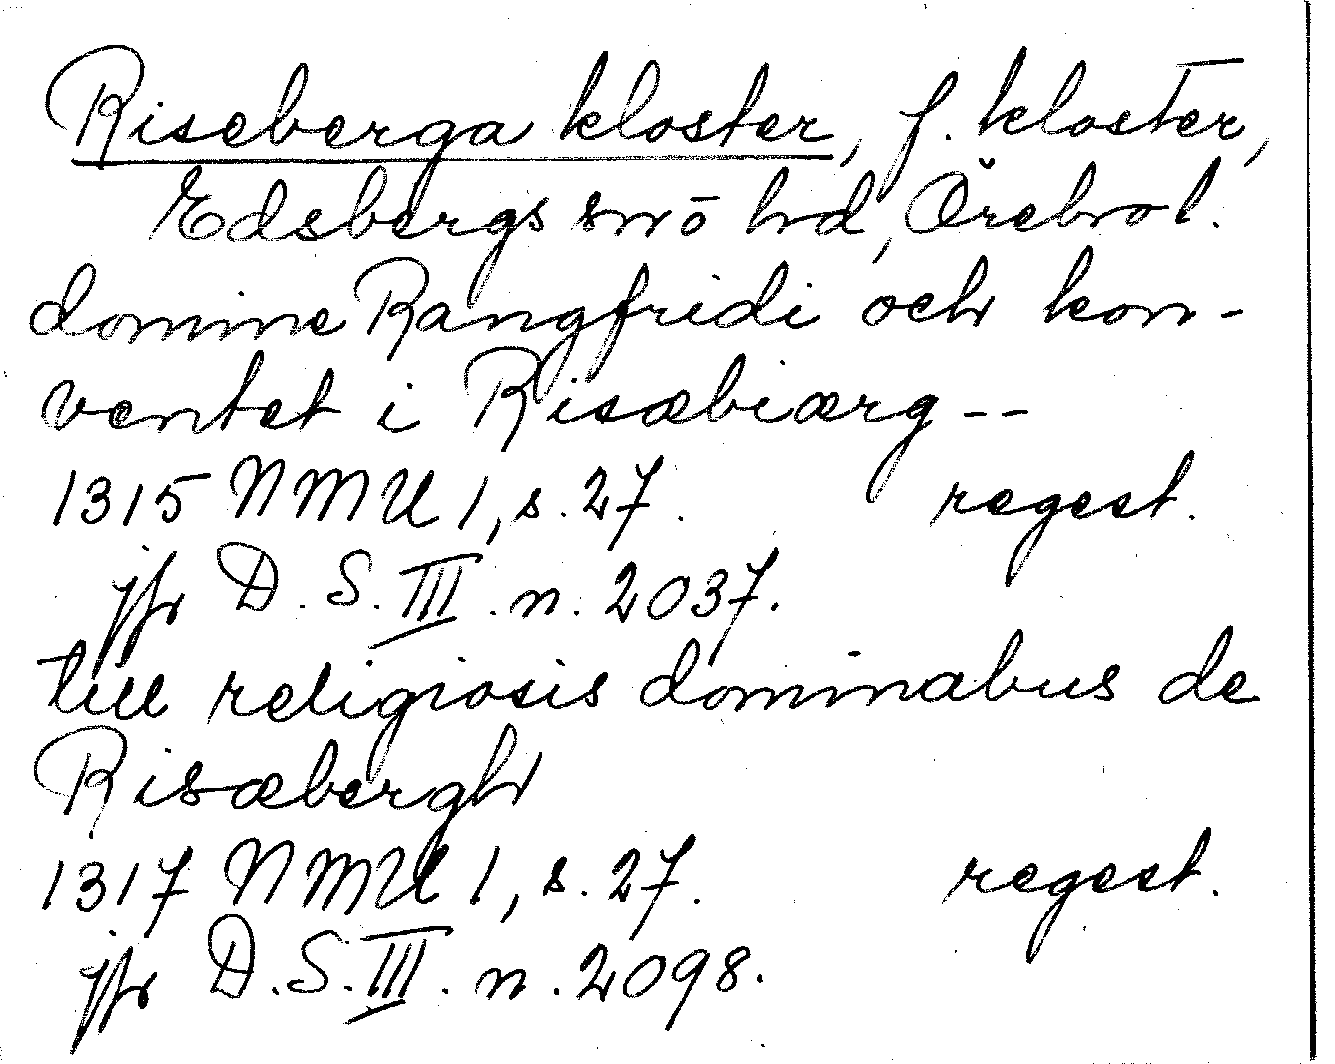 Riseberga kloster, f. kloster,
Edsbergs sn o hd, Örebro l.
domine Rangfridi och kon-
ventet i Risæbiærg --
1315 NMU 1, s. 27. regest.
jfr D. S. III. n. 2037.
till religiosis dominabus de
Risæbergh
1317 NMU 1, s. 27. regest.
jfr D. S. III. n. 2098.